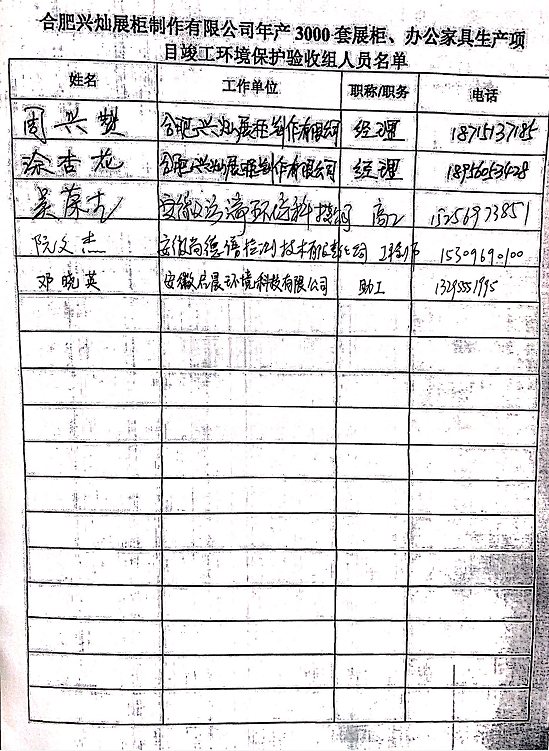 合肥兴灿展柜制作有限公司年产 3000 套展柜、办公家具生产项
目竣工环境保护验收组人员名单
姓名 工作单位 职称/职务 电话
周兴赞 合肥兴灿展柜制作有限公司 经理 18715137185
涂杏花 合肥兴灿展柜制作有限公司 经理 18956053428
高工 15256973851
阮文杰 安徽尚德谱检测技术有限责任公司 工程师 15309690100
邓晓英 安徽启晨环境科技有限公司 助工 13295551995